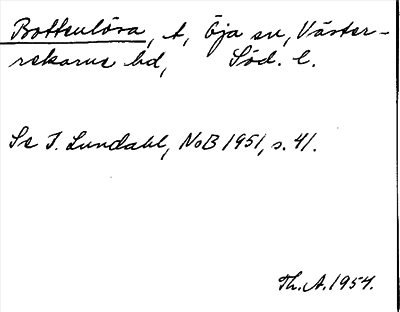 Bottenlöra, t, Öja sn, Väster-
rekarne hd, Söd. l.
Se I. Lundahl, NoB 1951, s. 41.
Th. A. 1954.